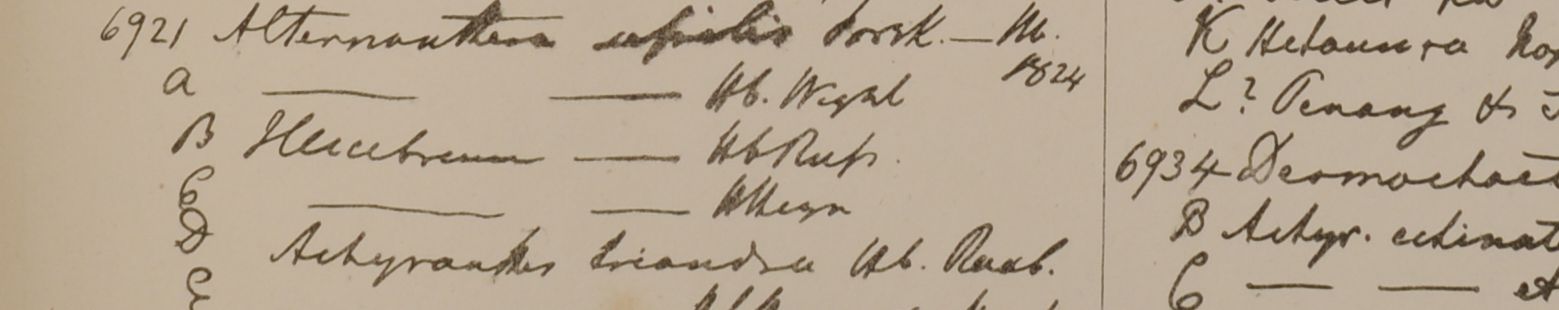 6921 Alternanthera sessilis Forsk. — M.
1824
A — — Hb. Wight
B Illecebrum — Hb Russ.
C — — HHeyn
D Achyranthes triandra Hb. Roxb.
E
K Hetaunra
L? Penang &
6934
B Achyr. echinat
C — —